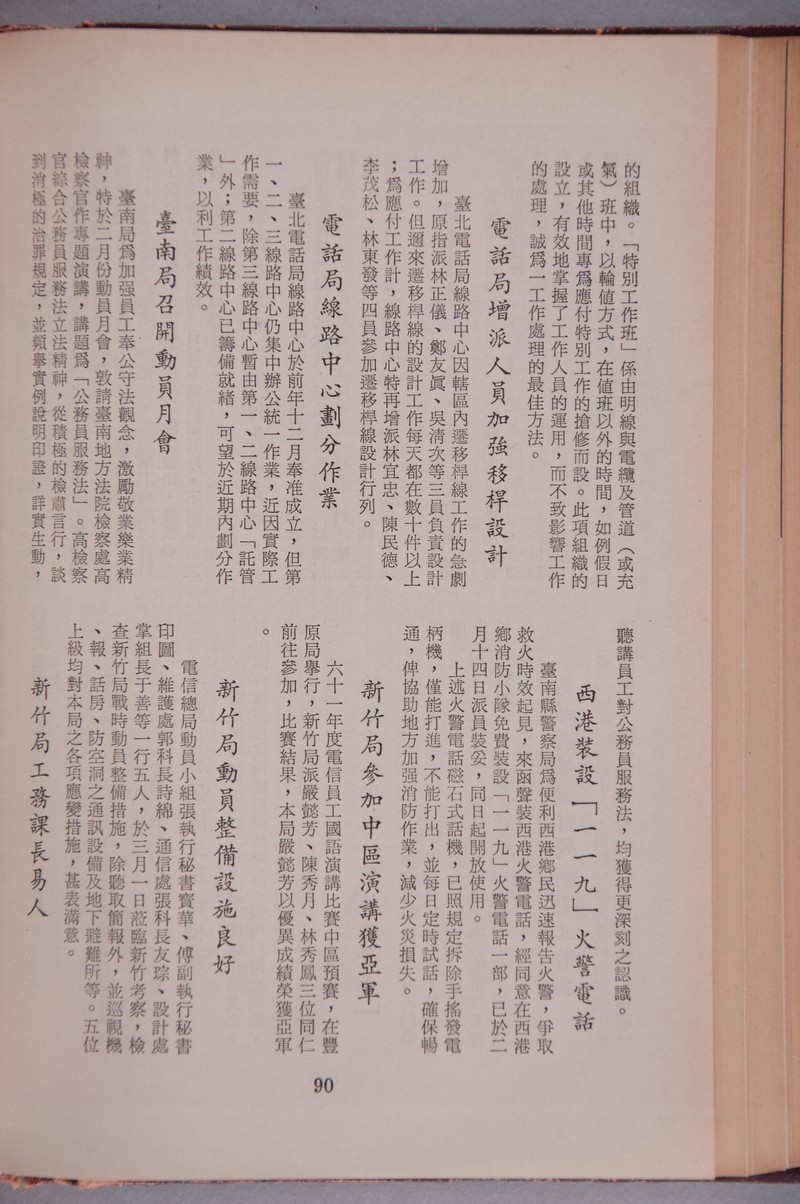 的組織。「特別工作班」係由明線與電纜及管道（或充
氣）班中，以輪值方式，在值班以外的時間，如例假日
或其他時間專爲應付特別工作的搶修而設。此項組織的
設立，有效地掌握了工作人員的運用，而不致影響工作
的處理，誠爲一工作處理的最佳方法。
電話局增派人員加強移桿設計
臺北電話局線路中心因轄區內遷移桿線工作的急劇
增加，原指派林正儀、鄭友眞、吳淸次等三員負責設計
工作。但邇來遷移桿線的設計工作每天都在數十件以上
；爲應付工作計，線路中心特再增派林宜忠、陳民德、
李茂松、林東發等四員參加遷移桿線設計行列。
電話局線路中心劃分作業
臺北電話局線路中心於前年十二月奉准成立，但第
一、二、三線路中心仍集中辦公統一作業，近因實際工
作需要，除第三線路中心暫由第一、二線路中心「託管
」外；第二線路中心已籌備就緒，可望於近期內劃分作
業，以利工作績效。
臺南局召開動員月會
臺南局爲加强員工奉公守法觀念，激勵敬業樂業精
神，特於二月份動員月會，敦請臺南地方法院檢察處高
檢察官作專題演講，講題爲「公務員服務法」。高檢察
官綜合公務員服務法立法精神，從積極的檢肅言行，談
到消極的治罪規定，並頻舉實例說明印證，詳實生動，
聽講員工對公務員服務法，均獲得更深刻之認識。
西港裝設「一一九」火警電話
臺南縣警察局爲便利西港鄉民迅速報告火警，爭取
救火時效起見，來函聲裝西港火警電話，經同意在西港
鄉消防小隊免費裝設「一一九」火警電話一部，已於二
月十四日派員裝妥，同日起開放使用。
上述火警電話磁石式話機，已照規定拆除手搖發電
柄機，僅能打進，不能打出，並每日定時試話，確保暢
通，俾協助地方加强消防作業，減少火災損失。
新竹局參加中區演講獲亞軍
六十一年度電信員工國語演講比賽中區預賽，在豐
原局舉行，新竹局派嚴懿芳、陳秀月、林秀鳳三位同仁
前往參加，比賽結果，本局嚴懿芳以優異成績榮獲亞軍
。
新竹局動員整備設施良好
電信總局動員小組張執行秘書寶華、傅副執行秘書
印圖、維護處郭科長詩綿、通信處張科長友琮、設計處
掌組長于善等一行五人，於三月一日蒞臨新竹考察，檢
查新竹局戰時動員整備措施，除聽取簡報外，並巡視機
、報、話房、防空洞之通訊設備及地下避難所等。五位
上級均對本局之各項應變措施，甚表滿意。
新竹局工務課長易人
90